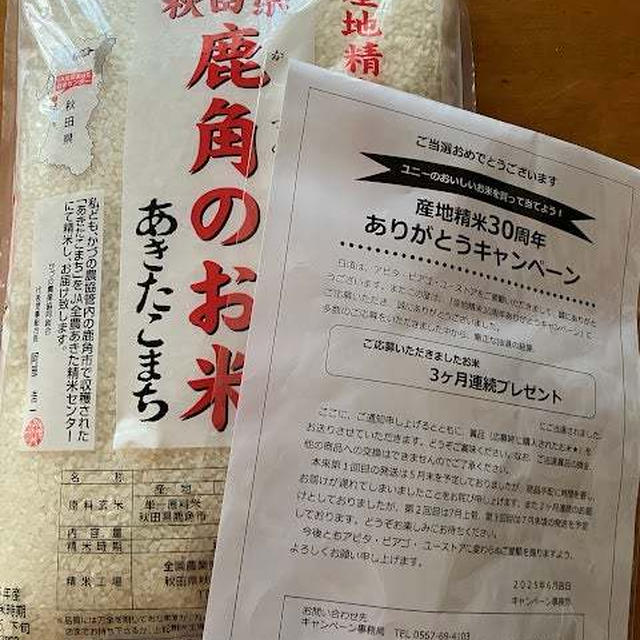 秋田県
鹿角のお米
あきたこまち
産地精
秋田県
私ども、かづの農協管内の鹿角市で収穫された
「あきたこまち」をJA全農あきた精米センター
にて精米し、お届け致します。
かづの農業協同組合
名 称
産 地
原料玄米
単一原料米
秋田県鹿角市
内容量
精米時期
精米工場
全国農業
秋田県秋
ご当選おめでとうございます
ユニーのおいしいお米を買って当てよう！
産地精米30周年
ありがとうキャンペーン
日頃は、アピタ・ピアゴ・ユーストアをご愛顧いただきまして、誠にありがと
うございます。またこの度は、「産地精米30周年ありがとうキャンペーン」に
ご応募いただき、誠にありがとうございました。
多数のご応募をいただきました中から、厳正な抽選の結果、
ご応募いただきましたお米
3ヶ月連続プレゼント
にご当選されました。
ここに、ご通知申し上げるとともに、賞品（応募時に購入されたお米★）を
お送りさせていただきます。どうぞご賞味ください。なお、ご当選賞品の換金、
他の商品への交換はできませんのでご了承ください。
本来第1回目の発送は5月末を予定しておりましたが、商品手配に時間を要し、
お届けが遅れてしまいましたことをお詫び申し上げます。また2ヶ月連続のお届
けとしておりましたが、第2回目は7月上旬、第3回目は7月末頃の発送を予定
しております。どうぞお楽しみにお待ちください。
今後ともアピタ・ピアゴ・ユーストアに変わらぬご愛顧を賜りますよう、
よろしくお願い申し上げます。
2025年6月吉日
キャンペーン事務局
お問い合わせ先
キャンペーン事務局 TEL 0557-69-4103